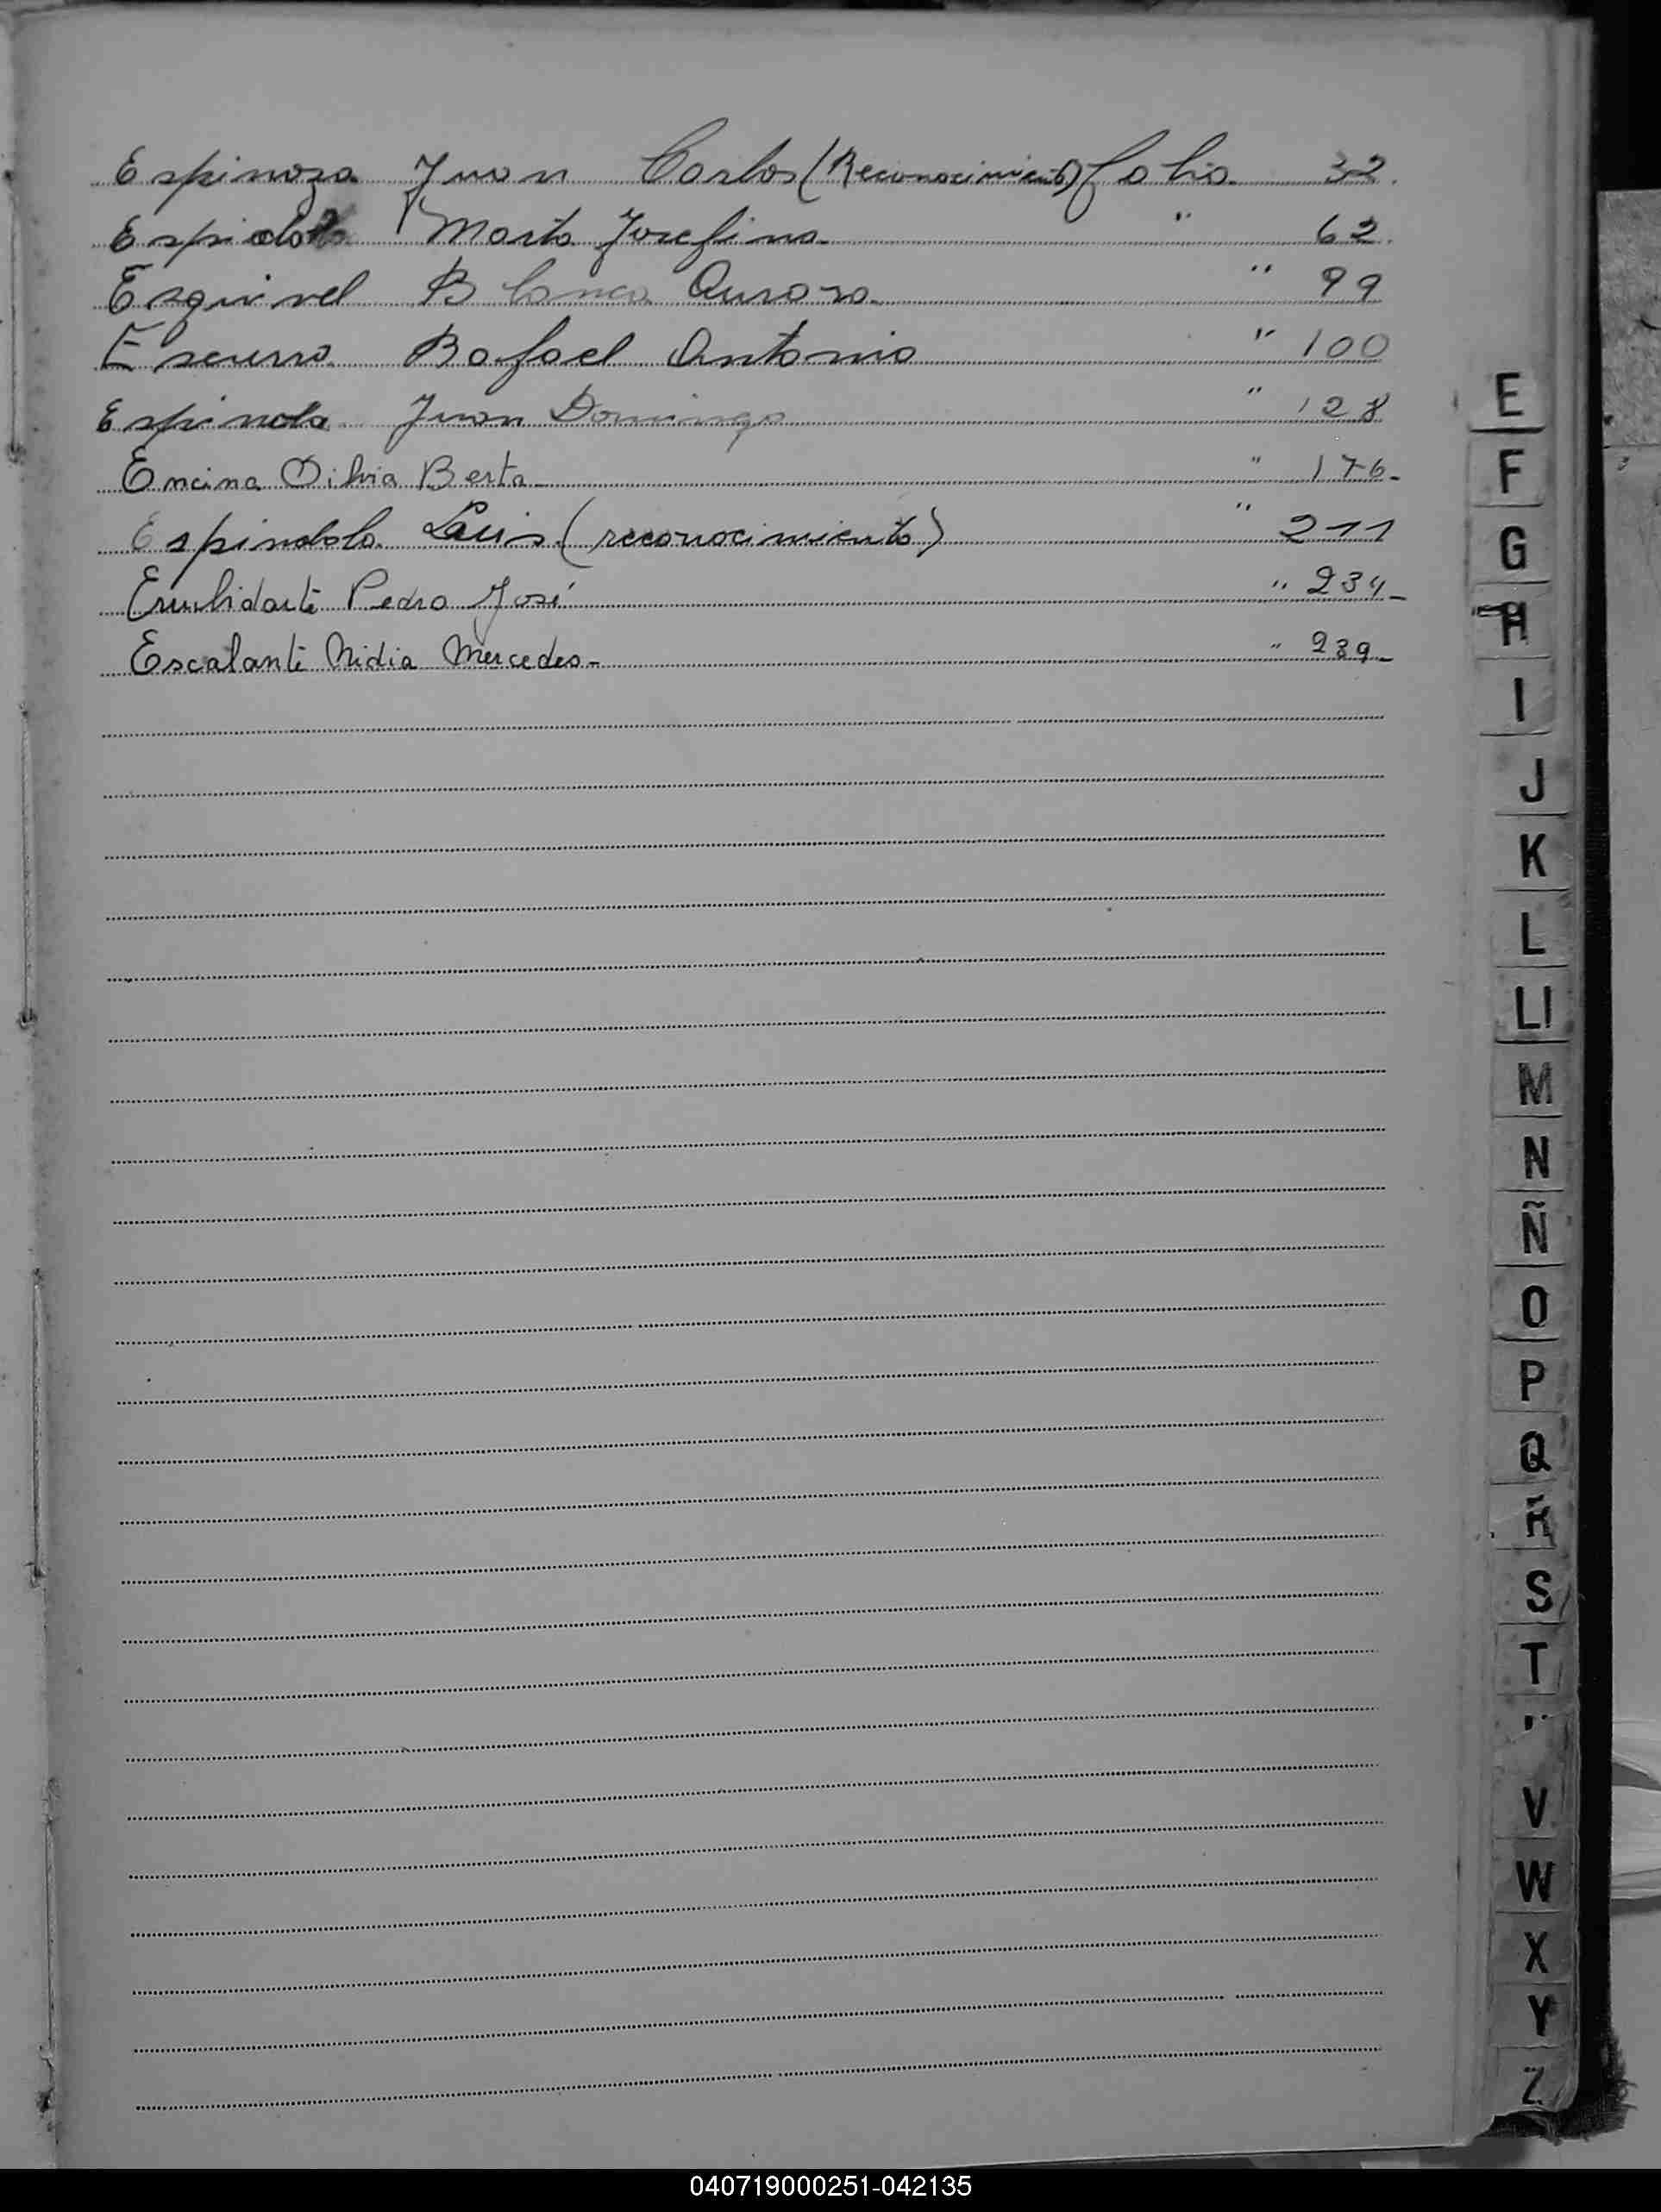 Espinoza Juan Carlos (Reconocimiento) folio 32.
Marta Josefina " 62.
Esquivel Blanca Aurora " 99
Escurra Rafael Antonio " 100
Espinola Juan Domingo " 128
Encina Dilvia Berta " 176-
Espindola Luis (reconocimiento) " 211
Pedro José " 234-
Escalante Nidia Mercedes- " 239-
E
F
G
H
I
J
K
L
Ll
M
N
Ñ
O
P
Q
R
S
T
V
W
X
Y
Z
040719000251-042135